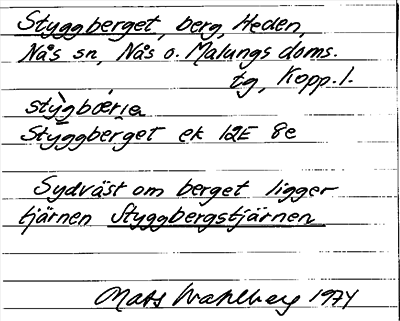 Styggberget, berg, Heden,
Nås sn, Nås o. Malungs doms.
tg, Kopp. l.
Styggberget ek 12E 8e
Sydväst om berget ligger
tjärnen Styggbergstjärnen
Mats Wahlberg 1974